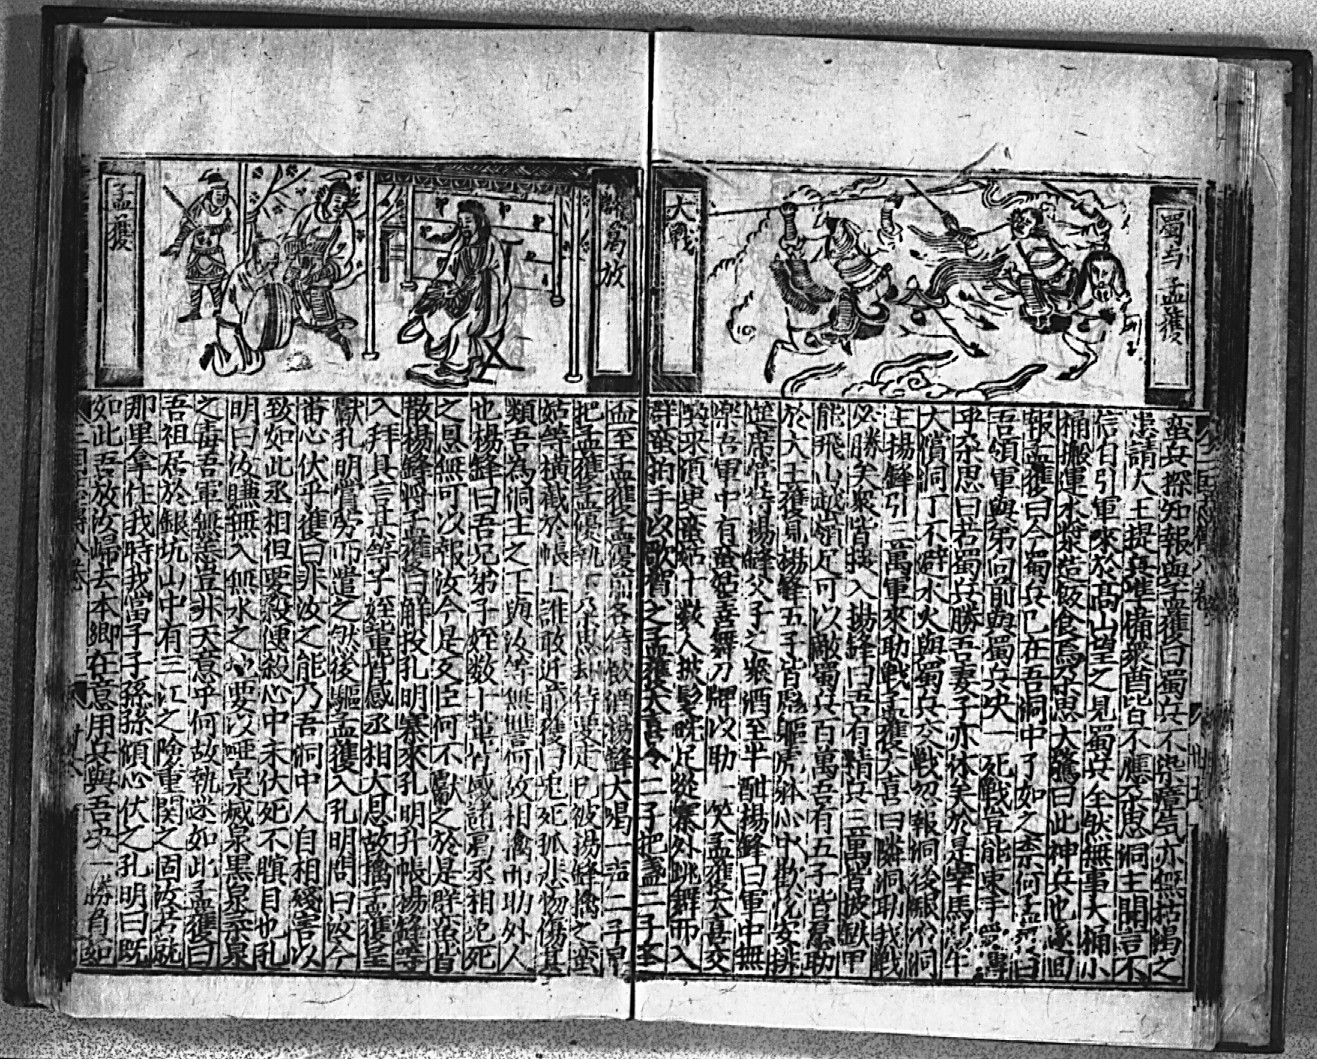 蜀与孟獲
大戰
蛮兵探知報與孟獲曰蜀兵不染瘴気亦無枯渇之
患請大王提兵準備衆酋皆不應朶思洞主聞言不
信自引軍來於高山望之見蜀兵全然無事大桶小
桶搬運水漿造飯食馬朶思大驚曰此神兵也遂回
報孟獲曰今蜀兵已在吾洞中了如之柰何孟獲曰
吾領軍與弟向前與蜀兵决一死戰豈能束手受縛
乎朶思曰若蜀兵勝吾妻子亦休矣於是宰馬殺牛
大償洞丁不避水火與蜀兵交戰忽報洞後銀冶洞
主揚鋒引三萬軍來助戰孟獲大喜曰隣洞助我戰
必勝矣衆皆接入揚鋒曰吾有精兵三萬皆披鉄甲
能飛山越嶺足可以敵蜀兵百萬吾有五子皆來助
於大王獲見揚鋒五子皆 軀 心中歡悅安排
筵席 待揚鋒父子之衆酒至半酣揚鋒曰軍中無
樂吾軍中有蛮姑善舞刀牌以助一笑孟獲大喜交
喚來須臾蛮姑十數人披髮跣足從寨外跳舞而入
群蛮拍手以歌賀之孟獲大喜令二子把盞二子至
諸葛放
孟獲
盃至孟獲孟優前各待飲酒揚鋒大喝一声二子早
把孟獲孟優執下朶思却待要走已被揚鋒擒之蛮
姑等橫截於帳上誰敢近前獲曰兎死狐悲物傷其
類吾為洞主之王與汝等無讐何故相擒而助外人
也揚鋒曰吾兄弟子姪數十輩皆感諸葛丞相免死
之恩無可以報汝今是反臣何不獻之於是群蛮皆
散揚鋒將孟獲 解投孔明寨來孔明升帳揚鋒等
入拜具言某等子姪輩皆感丞相大恩故擒孟獲至
獻孔明賞勞而遣之然後驅孟獲入孔明問曰汝今
畨心伏乎獲曰非汝之能乃吾洞中人自相殘害以
致如此丞相但要殺便殺心中未伏死不瞑目也孔
明曰汝賺無入無水之 更以啞泉滅泉黑泉柔泉
之毒吾軍無恙豈非天意乎何故執迷如此孟獲曰
吾祖居於銀坑山中有三江之險重関之固汝若就
那里拿住我時我當子子孫孫傾心伏之孔明曰既
如此吾放汝歸去本鄉在意用兵與吾决一勝負如